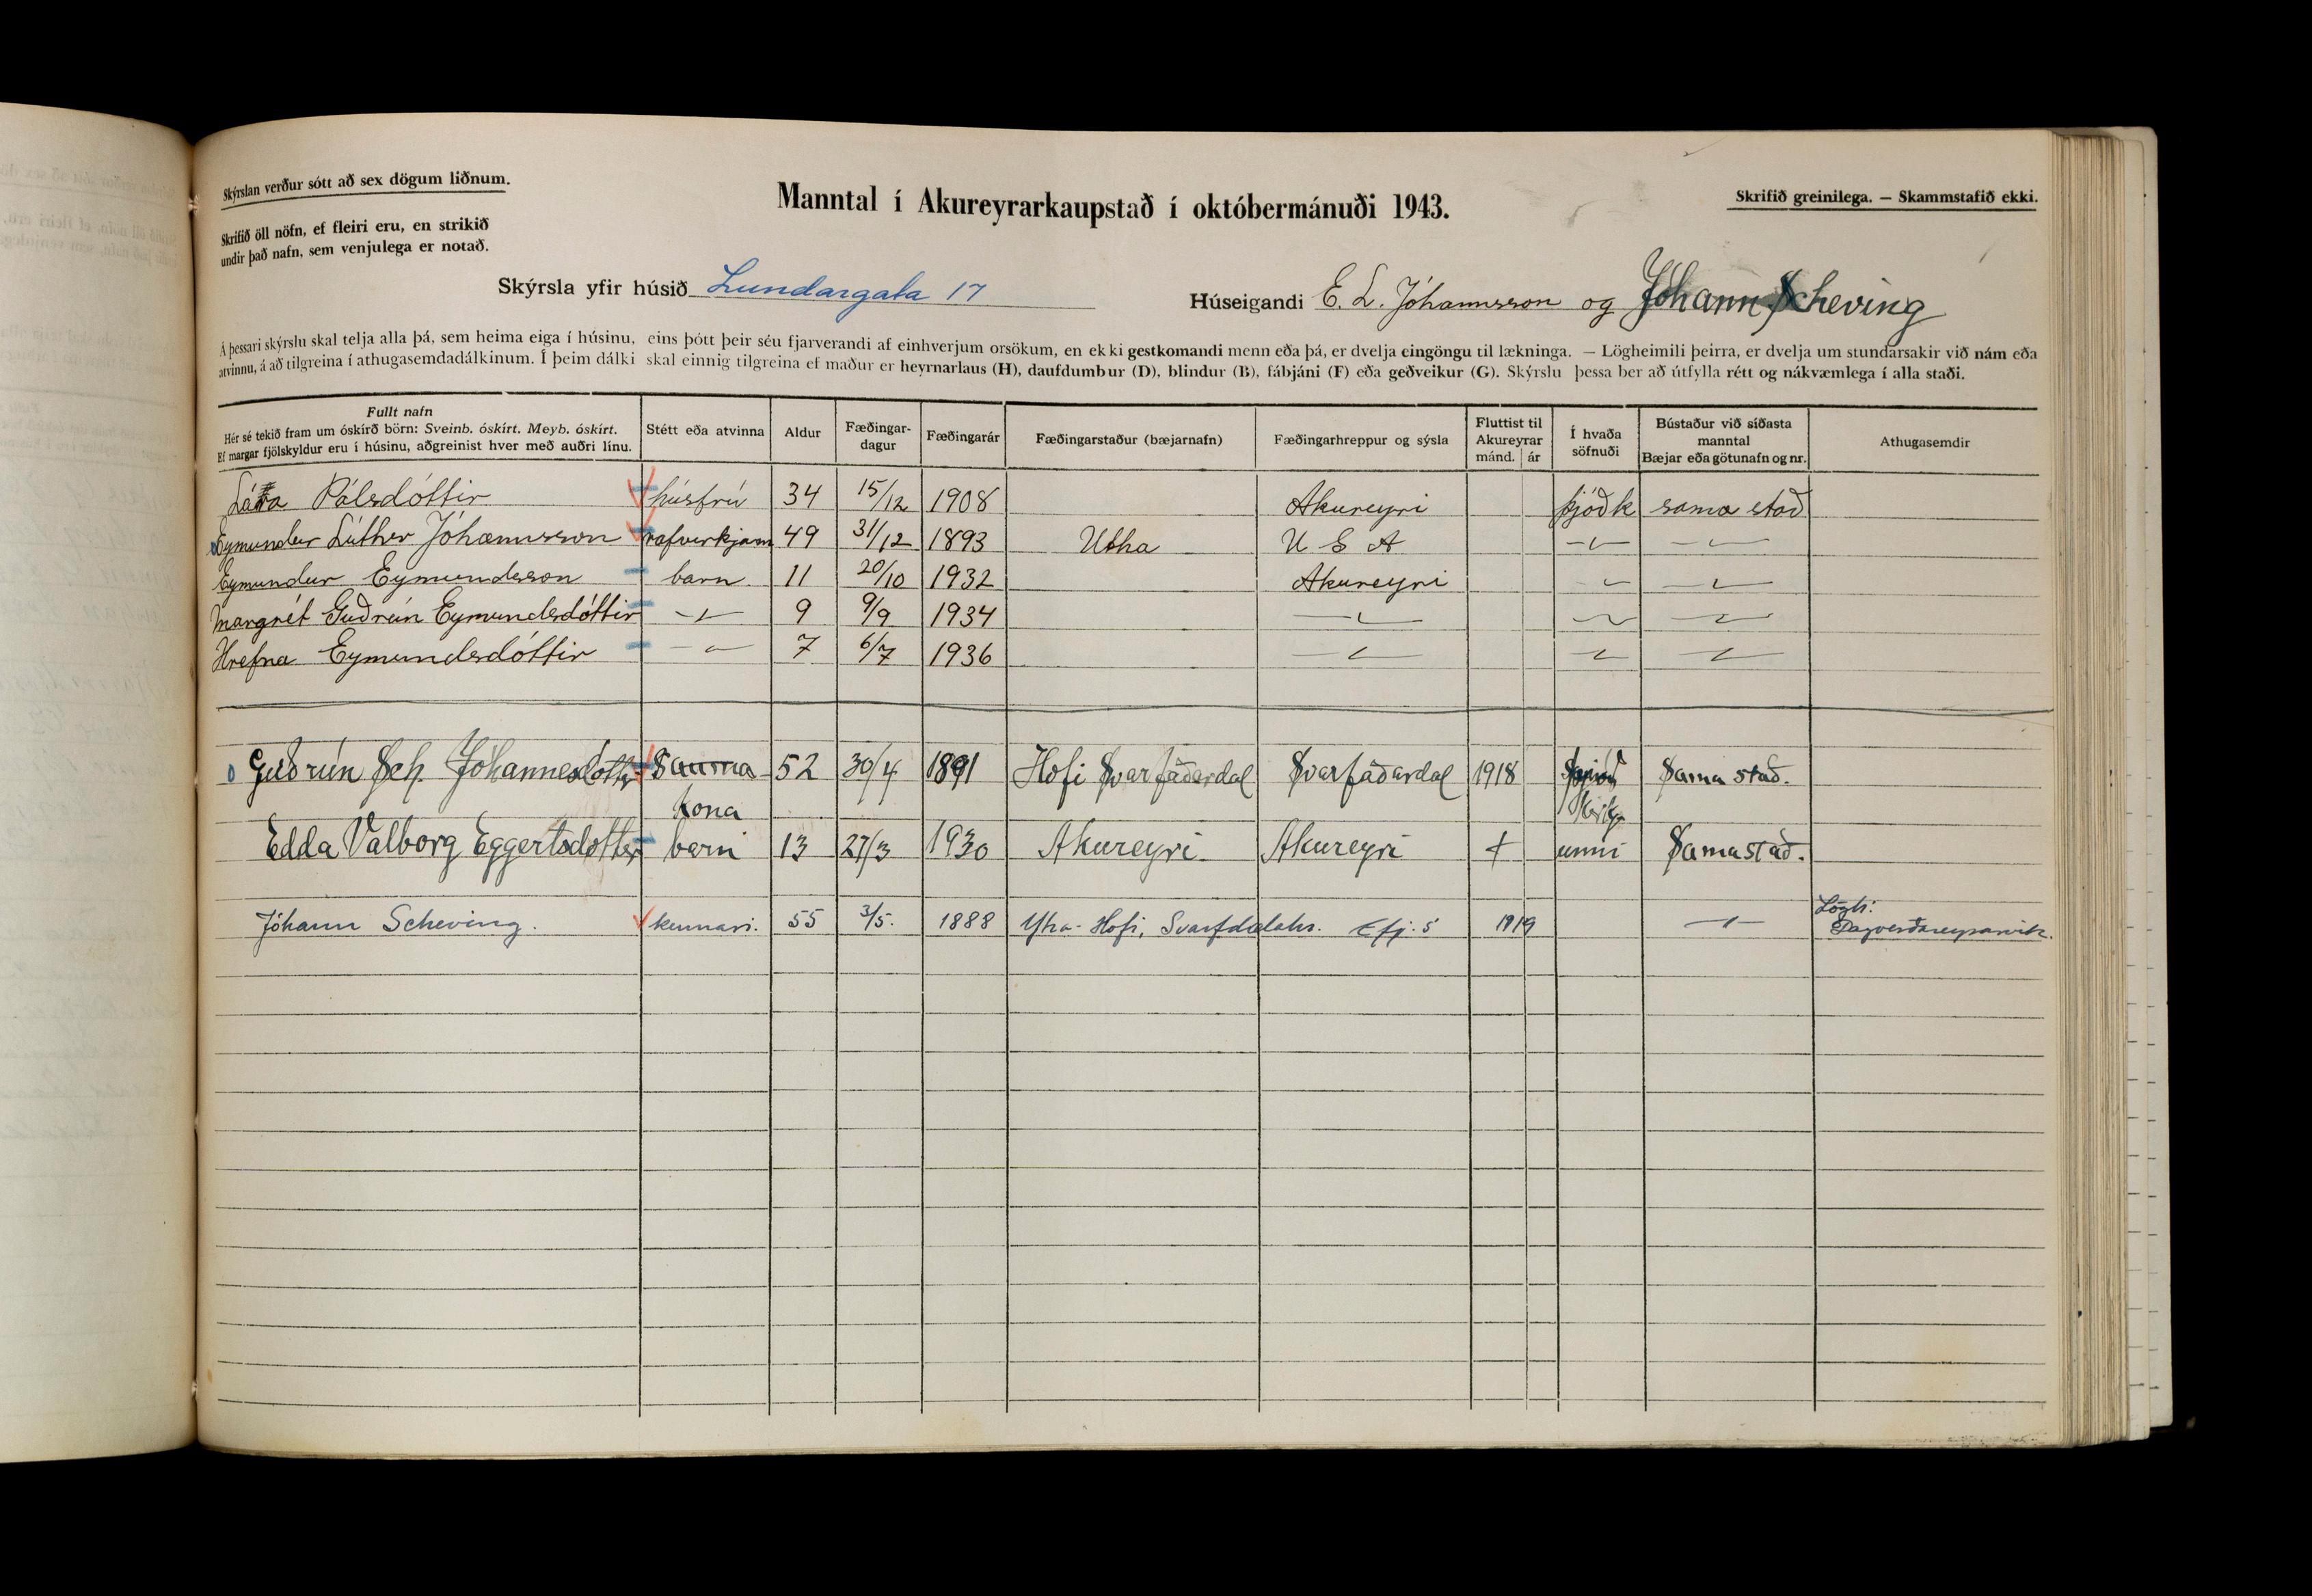 Skýrslan verður sótt að sex dögum liðnum.
Skrifið öll nöfn, ef fleiri eru, en strikið
undir það nafn, sem venjulega er notað.
Manntal í Akureyrarkaupstað í októbermánuði 1943.
Skrifið greinilega. — Skammstafið ekki.
Skýrsla yfir húsið Lundargata 17
Húseigandi E. L. Jóhannsson og Jóhann Scheving
Á þessari skýrslu skal telja alla þá, sem heima eiga í húsinu, eins þótt þeir séu fjarverandi af einhverjum orsökum, en ekki gestkomandi menn eða þá, er dvelja eingöngu til lækninga. — Lögheimili þeirra, er dvelja um stundarsakir við nám eða
atvinnu, á að tilgreina í athugasemdadálkinum. Í þeim dálki skal einnig tilgreina ef maður er heyrnarlaus (H), daufdumbur (D), blindur (B), fábjáni (F) eða geðveikur (G). Skýrslu þessa ber að útfylla rétt og nákvæmlega í alla staði.
Fullt nafn
Hér sé tekið fram um óskírð börn: Sveinb. óskírt. Meyb. óskírt.
Ef margar fjölskyldur eru í húsinu, aðgreinist hver með auðri línu.
Stétt eða atvinna
Aldur
Fæðingar-
dagur
Fæðingarár
Fæðingarstaður (bæjarnafn)
Fæðingarhreppur og sýsla
Fluttist til
Akureyrar
mánd. ár
Í hvaða
söfnuði
Bústaður við síðasta
manntal
Bæjar eða götunafn og nr.
Athugasemdir
Lára Pálsdóttir húsfrú 34 15/12 1908 Akureyri þjóðk sama stað
Eymundur Lúther Jóhannsson rafvirkjam 49 31/12 1893 Utha U S A
Eymundur Eymundsson barn 11 20/10 1932 Akureyri
Margrét Guðrún Eymundsdóttir 9 9/9 1934
Hrefna Eymundsdóttir 7 6/7 1936
Guðrún Sch. Jóhannesdóttir Sauma 52 30/4 1891 Hofi Svarfaðardal Svarfaðardal 1918 Sama stað.
kona
Edda Valborg Eggertsdottir barn 13 27/3 1930 Akureyri Akureyri unni Sama stað.
Jóhann Scheving. kennari. 55 3/5. 1888 Ytra-Hofi, Svarfdælahr. Efj.s 1919
Lögh:
Dagverðareyrarvík.